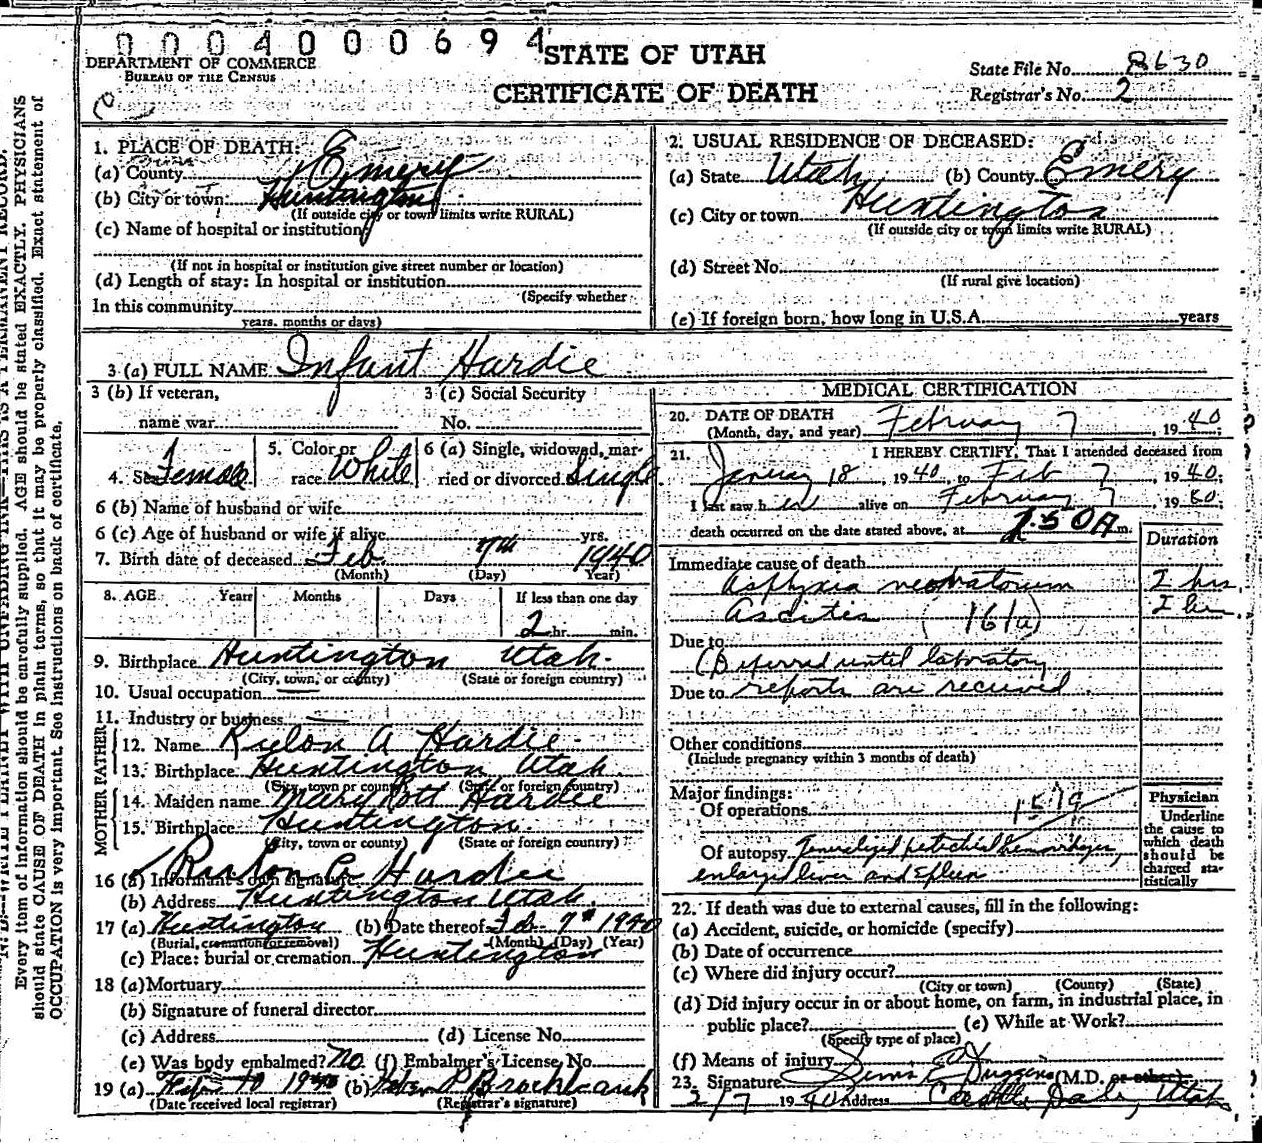 0004000694
STATE OF UTAH
CERTIFICATE OF DEATH
DEPARTMENT OF COMMERCE
BUREAU OF THE CENSUS
State File No. 8630
Registrar's No. 2
Every item of information should be carefully supplied. AGE should be stated EXACTLY. PHYSICIANS
should state CAUSE OF DEATH in plain terms, so that it may be properly classified. Exact statement of
OCCUPATION is very important. See instructions on back of certificate.
1. PLACE OF DEATH:
(a) County Emery
(b) City or town: Huntington
(If outside city or town limits write RURAL)
(c) Name of hospital or institution
(If not in hospital or institution give street number or location)
(d) Length of stay: In hospital or institution
(Specify whether
In this community
years, months or days)
2. USUAL RESIDENCE OF DECEASED:
(a) State Utah (b) County Emery
(c) City or town Huntington
(If outside city or town limits write RURAL)
(d) Street No.
(If rural give location)
(e) If foreign born, how long in U.S.A. years
3 (a) FULL NAME Infant Hardie
3 (b) If veteran, 3 (c) Social Security
name war No.
4. Sex Female 5. Color or race White 6 (a) Single, widowed, married or divorced Single
6 (b) Name of husband or wife
6 (c) Age of husband or wife if alive yrs.
7. Birth date of deceased Feb. 7th 1940
(Month) (Day) Year)
8. AGE Years Months Days If less than one day
2 hr. min.
9. Birthplace Huntington Utah.
(City, town, or county) (State or foreign country)
10. Usual occupation
11. Industry or business
FATHER
12. Name Rulon A Hardie
13. Birthplace Huntington Utah.
(City, town or county) (State or foreign country)
MOTHER
14. Maiden name Mary Hardie
15. Birthplace Huntington.
(City, town or county) (State or foreign country)
16 (a) Informant's own signature Hardie
(b) Address Huntington Utah.
17 (a) Huntington (b) Date thereof Feb. 7th 1940
(Burial, cremation or removal) (Month) (Day) (Year)
(c) Place: burial or cremation Huntington
18 (a) Mortuary
(b) Signature of funeral director
(c) Address (d) License No.
(e) Was body embalmed? No (f) Embalmer's License No.
19 (a) 10 1940 (b) Brockbank
(Date received local registrar) (Registrar's signature)
MEDICAL CERTIFICATION
20. DATE OF DEATH February 7, 1940;
(Month, day, and year)
21. I HEREBY CERTIFY, That I attended deceased from
January 18, 1940, to Feb 7, 1940;
I last saw her alive on February 7, 19
death occurred on the date stated above, at 2:50A m.
Duration
Immediate cause of death
Asphyxia neonatorum 2 hrs.
Ascites (161a) 2 hrs.
Due to
(Deferred until laboratory
Due to reports are received.
Other conditions
(Include pregnancy within 3 months of death)
Major findings:
Of operations
Of autopsy Generalized petechial hemorrhages,
enlarged liver and spleen
Physician
Underline
the cause to
which death
should be
charged sta-
tistically
22. If death was due to external causes, fill in the following:
(a) Accident, suicide, or homicide (specify)
(b) Date of occurrence
(c) Where did injury occur?
(City or town) (County) (State)
(d) Did injury occur in or about home, on farm, in industrial place, in
public place? (e) While at Work?
(Specify type of place)
(f) Means of injury
23. Signature Duggins (M.D. or other)
2/7 1940 Address Castle Dale, Utah